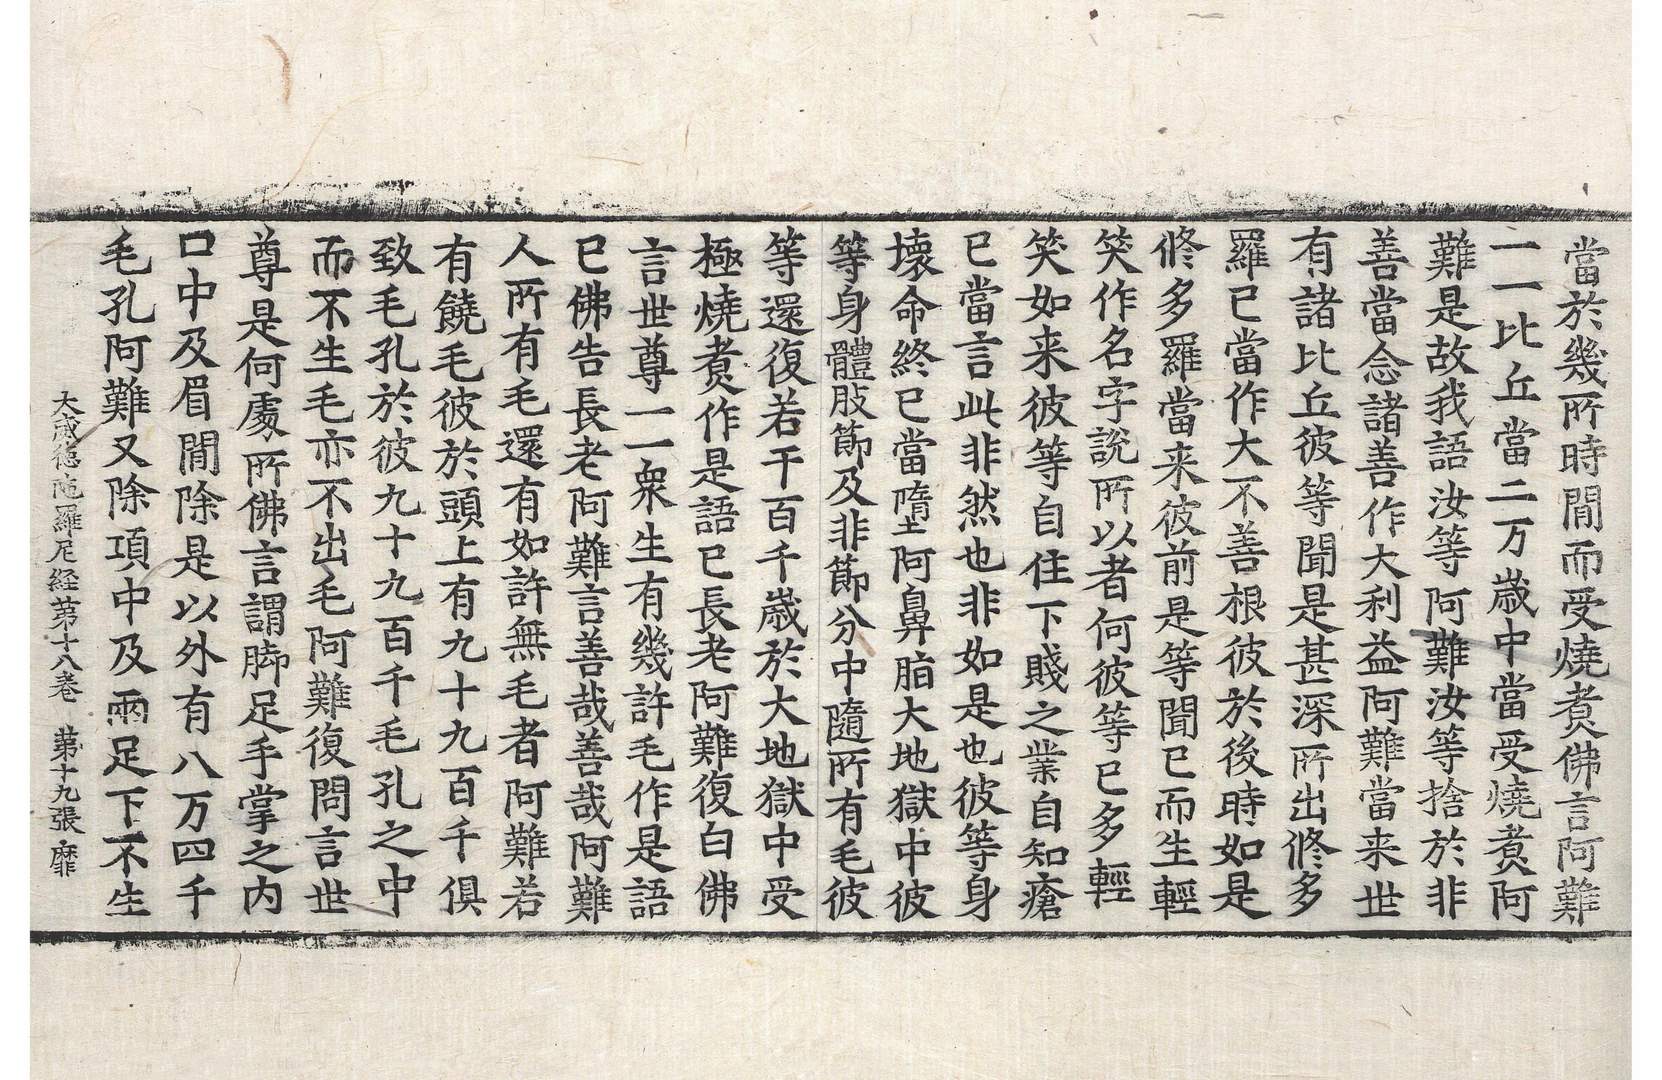 當於幾所時閒而受燒煑佛言阿難
一一比丘當二万歲中當受燒煑阿
難是故我語汝等阿難汝等捨於非
善當念諸善作大利益阿難當来世
有諸比丘彼等聞是甚深所出修多
羅已當作大不善根彼於後時如是
修多羅當来彼前是等聞已而生輕
笑作名字說所以者何彼等已多輕
笑如来彼等自住下賤之業自知瘡
已當言此非然也非如是也彼等身
壞命終已當墮阿鼻脂大地獄中彼
等身體肢節及非節分中隨所有毛彼
等還復若干百千歲於大地獄中受
極燒煑作是語已長老阿難復白佛
言世尊一一衆生有幾許毛作是語
已佛告長老阿難言善哉善哉阿難
人所有毛還有如許無毛者阿難若
有饒毛彼於頭上有九十九百千俱
致毛孔於彼九十九百千毛孔之中
而不生毛亦不出毛阿難復問言世
尊是何處所佛言謂脚足手掌之内
口中及眉閒除是以外有八万四千
毛孔阿難又除項中及兩足下不生
大威德陁羅尼経第十八卷　第十九張　靡